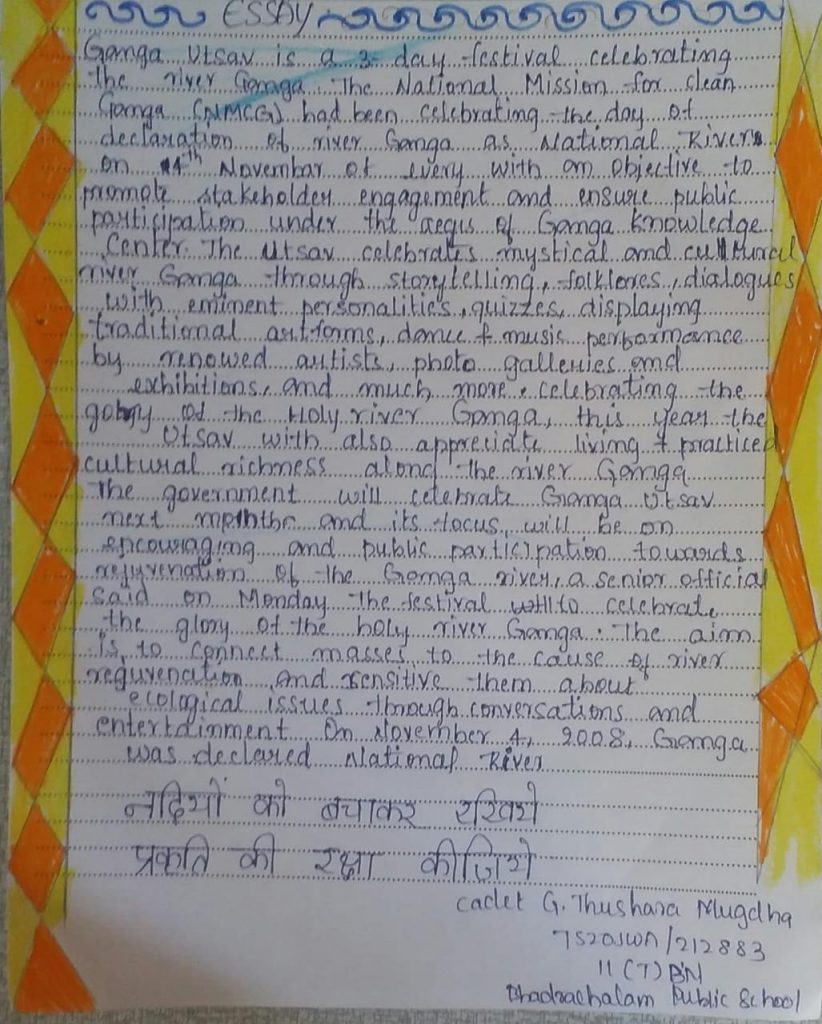 ESSAY
Ganga Utsav is a 3- day festival celebrating
the river Ganga. The National Mission for clean
Ganga (NMCG) had been celebrating the day of
declaration of river Ganga as National Rivers
on 4th Novembar of every with an objective to
promote stakeholder engagement and ensure public
participation under the aegis of Ganga Knowledge
Center. The Utsav celebrates mystical and cultural
river Ganga through storytelling, folklores, dialogues
with eminent personalities, quizzes, displaying
traditional artforms, dance & music performance
by renowed artists, photo galleries and
exhibitions, and much more. celebrating the
of the Holy river Ganga, this year the
Utsav with also appreciate living & practiced
cultural richness along the river Ganga
The government will celebrate Ganga Utsav
next and its focus will be on
encouraging and public participation towards
rejuvenation of the Ganga river, a senior official
said on Monday the festival to celebrate
the glory of the holy river Ganga. The aim
is to connect masses to the cause of river
reguvenation and sensitive them about
ecological issues through conversations and
entertainment On November 4, 2008, Ganga
was declared National River
नदियों को बचाकर रखिये
प्रकति की रक्षा कीजिये
cadet G. Thushara Mugdha
TS20JWA/212883
11 (T) BN
Bhadrachalam Public School